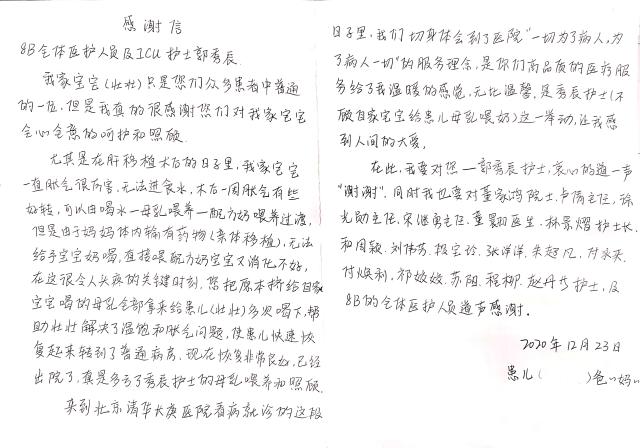 感谢信
8B全体医护人员及ICU护士郭秀辰
我家宝宝(壮壮)只是您们众多患者中普通
的一位，但是我真的很感谢您们对我家宝宝
全心全意的呵护和照顾.
尤其是在肝移植术后的日子里，我家宝宝
一直胀气很厉害，无法进食水，术后一周胀气有些
好转，可以由喝水—母乳喂养—配方奶喂养过渡，
但是由于妈妈体内输有药物(亲体移植)，无法
给予宝宝奶喝，直接喂配方奶宝宝又消化不好，
在这很令人头疼的关键时刻，您把原本挤给自家
宝宝喝的母乳全部拿来给患儿(壮壮)多次喝下，帮
助壮壮解决了温饱和胀气问题，使患儿快速恢
复起来转到了普通病房，现在恢复非常良好，已经
出院了，真是多亏了秀辰护士的母乳喂养和照顾.
来到北京清华长庚医院看病就诊的这段
日子里，我们切身体会到了医院"一切为了病人，为
了病人一切"的服务理念，是你们高品质的医疗服
务给了我温暖的感觉，无比温馨，是秀辰护士(不
顾自家宝宝给患儿母乳喂奶)这一举动，让我感
到人间的大爱.
在此，我要对您—郭秀辰护士，衷心的道一声
"谢谢"，同时我也要对董家鸿院士，卢倩主任，徐
光勋主任，宋继勇主任，董翔医生，林景熠护士长，
和周颖，刘伟苏，张洋洋，朱超凡，付未来，
付焕利，祁姣姣，苏阳，程柳，赵丹护士，及
8B的全体医护人员道声感谢.
2020年12月23日
患儿( )爸爸妈妈